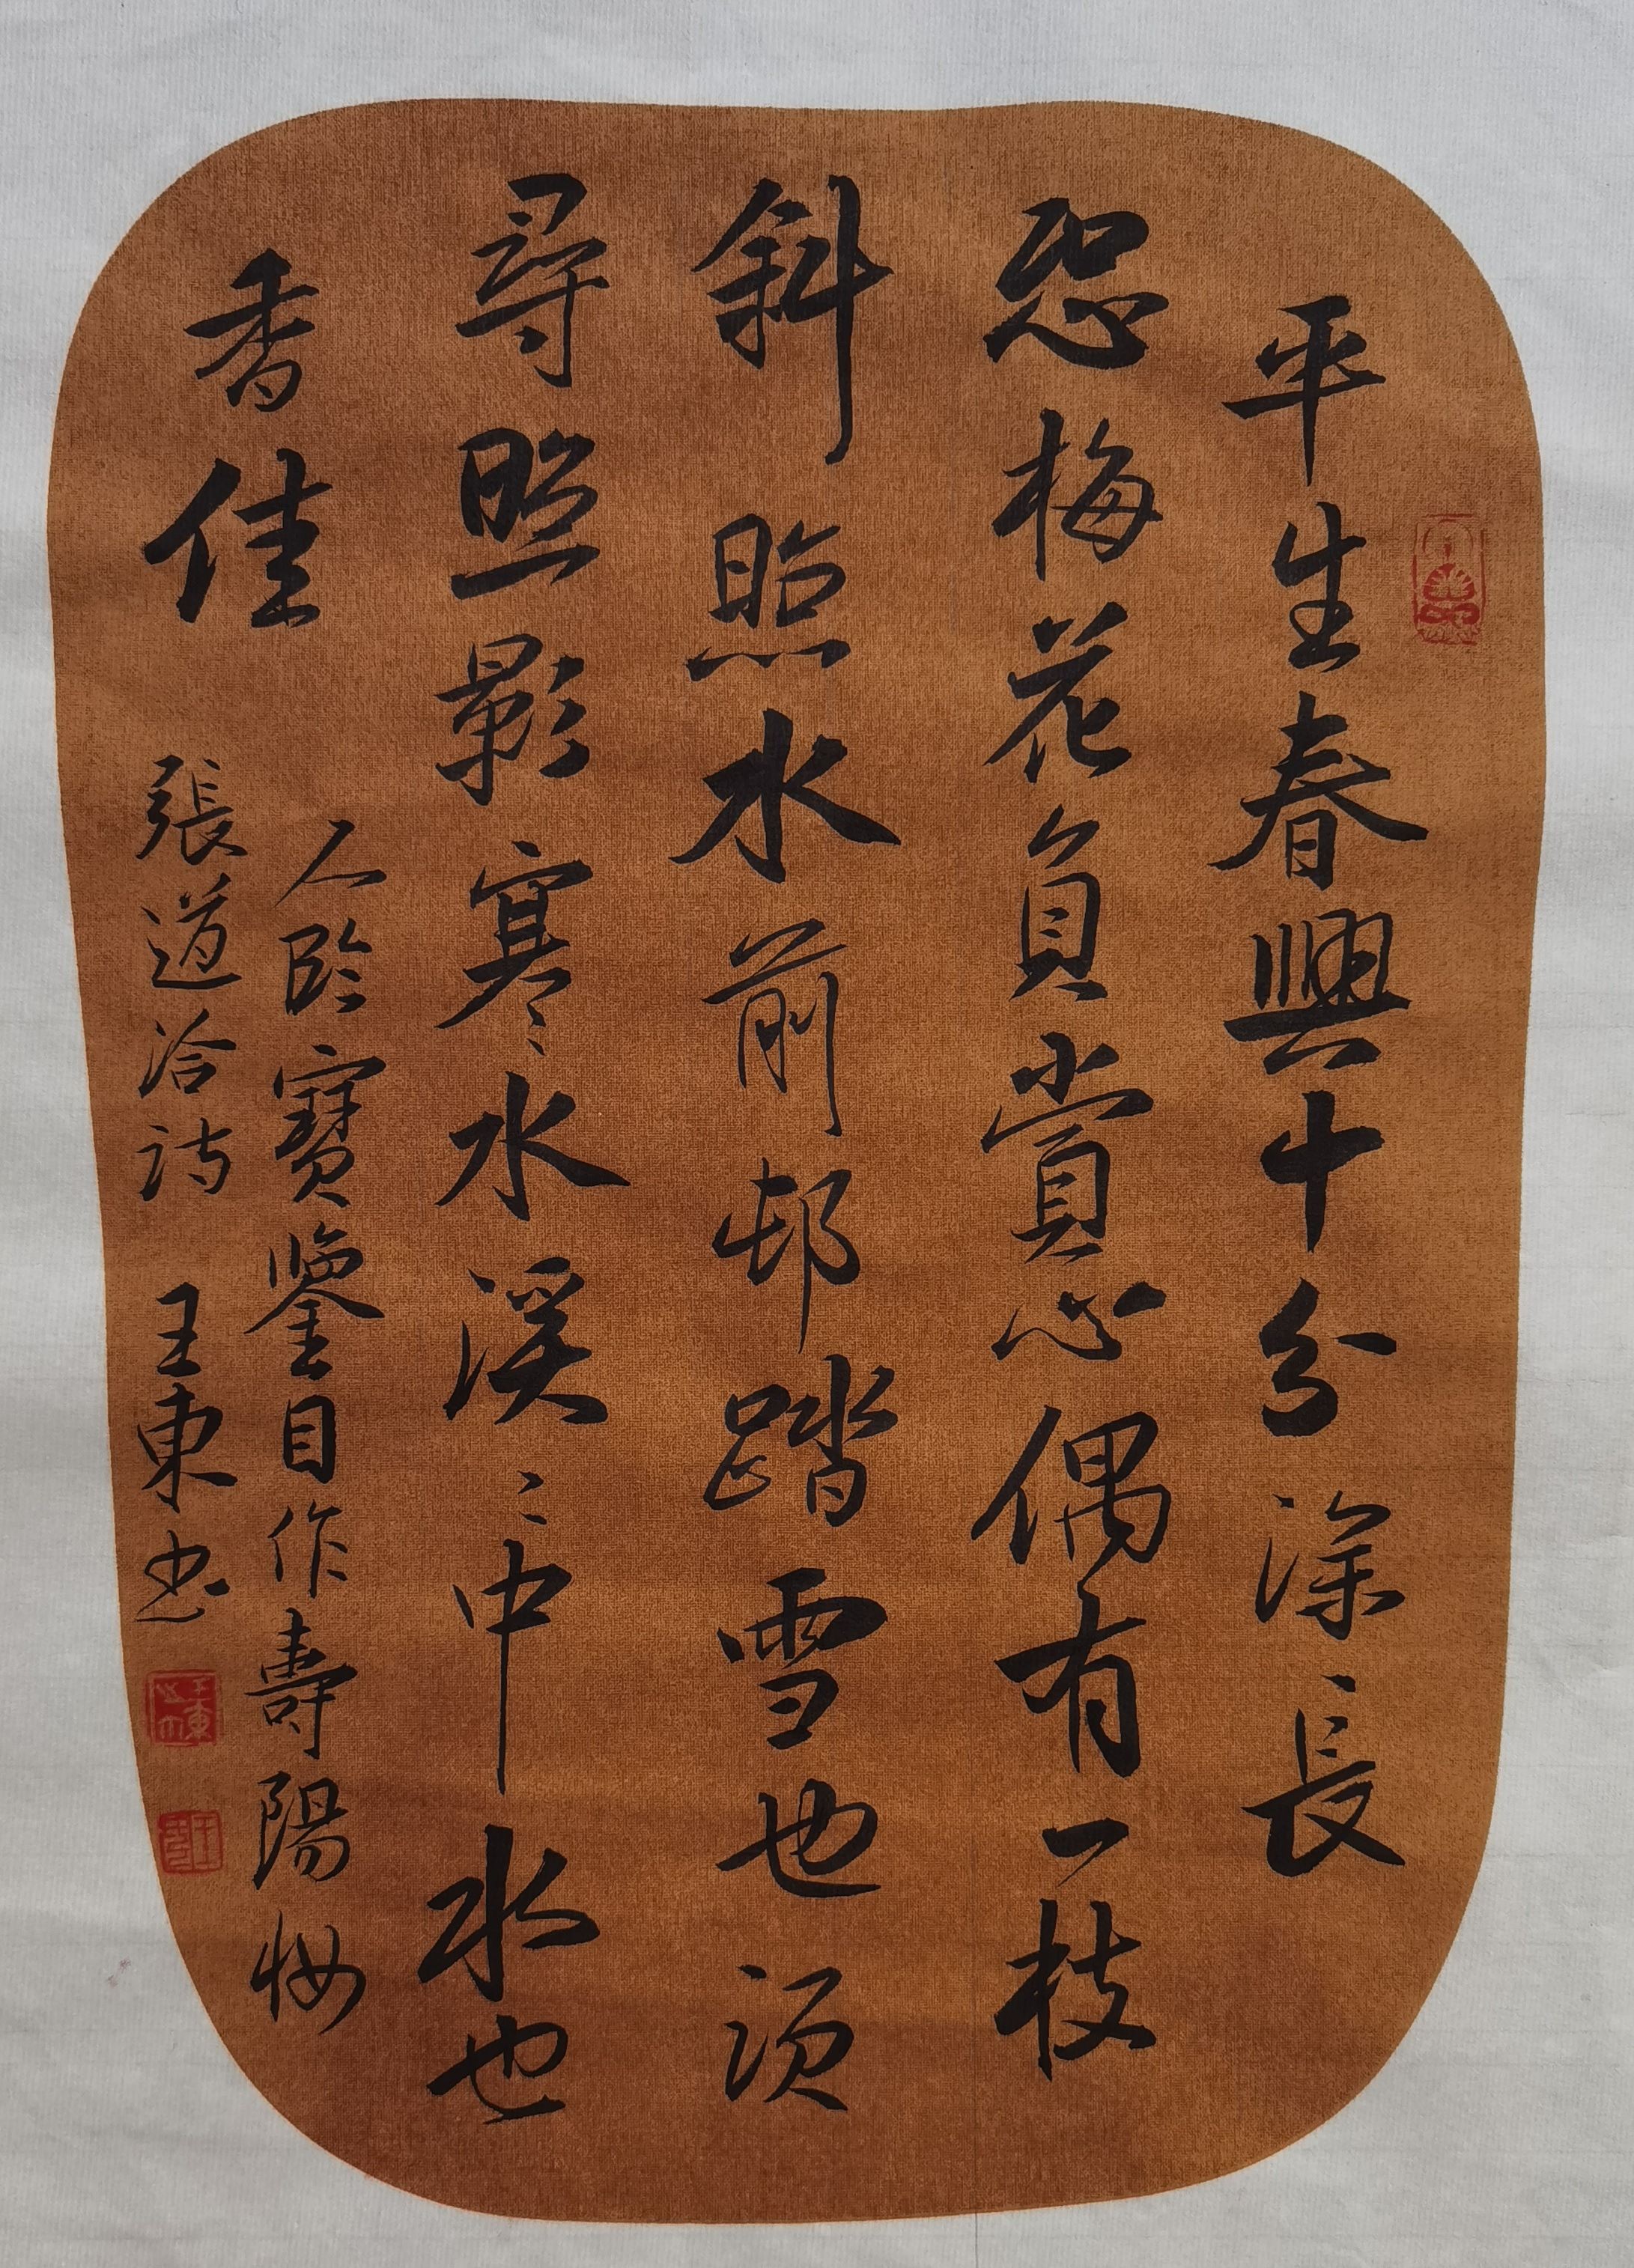 平生春興十分深長
恐梅花負賞心偶有一枝
斜照水前邨踏雪也須
尋照影寒水溪々中水也
香佳
人臨寶鑒自作壽陽妝
張道洽詩 王東书